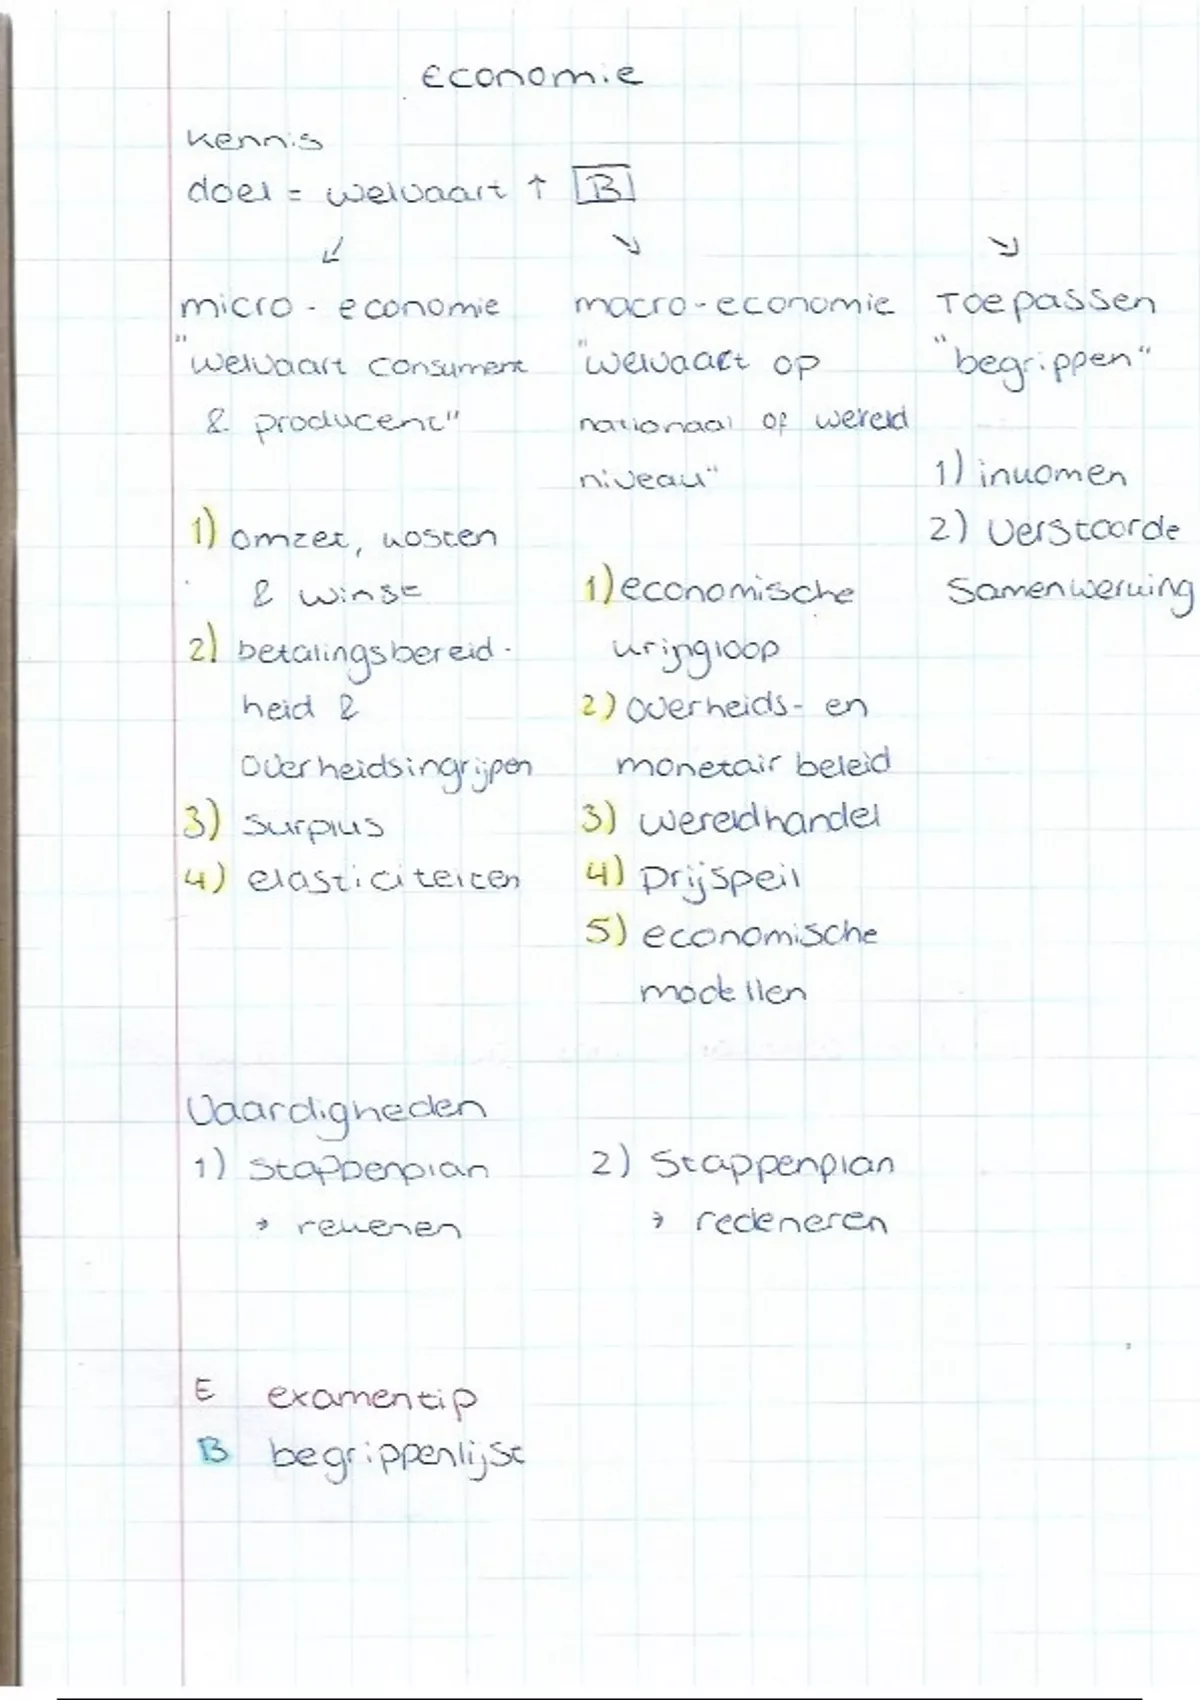 economie
kennis
doel = welvaart ↑ [B]
↙ ↘ ↘
micro-economie
"welvaart consument
& producent"
1) omzet, kosten
& winst
2) betalingsbereid-
heid &
overheidsingrijpen
3) surplus
4) elasticiteiten
macro-economie
"welvaart op
nationaal of wereld
niveau"
1) economische
kringloop
2) overheids- en
monetair beleid
3) wereldhandel
4) prijspeil
5) economische
modellen
Toepassen
"begrippen"
1) inkomen
2) verstoorde
samenwerking
Vaardigheden
1) stappenplan
→ rekenen
2) stappenplan
→ redeneren
E examentip
B begrippenlijst